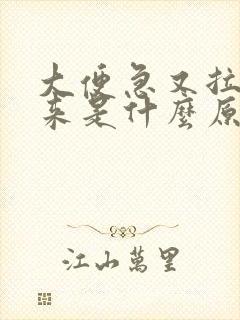 大便急又拉
来是什麼原
江山萬里